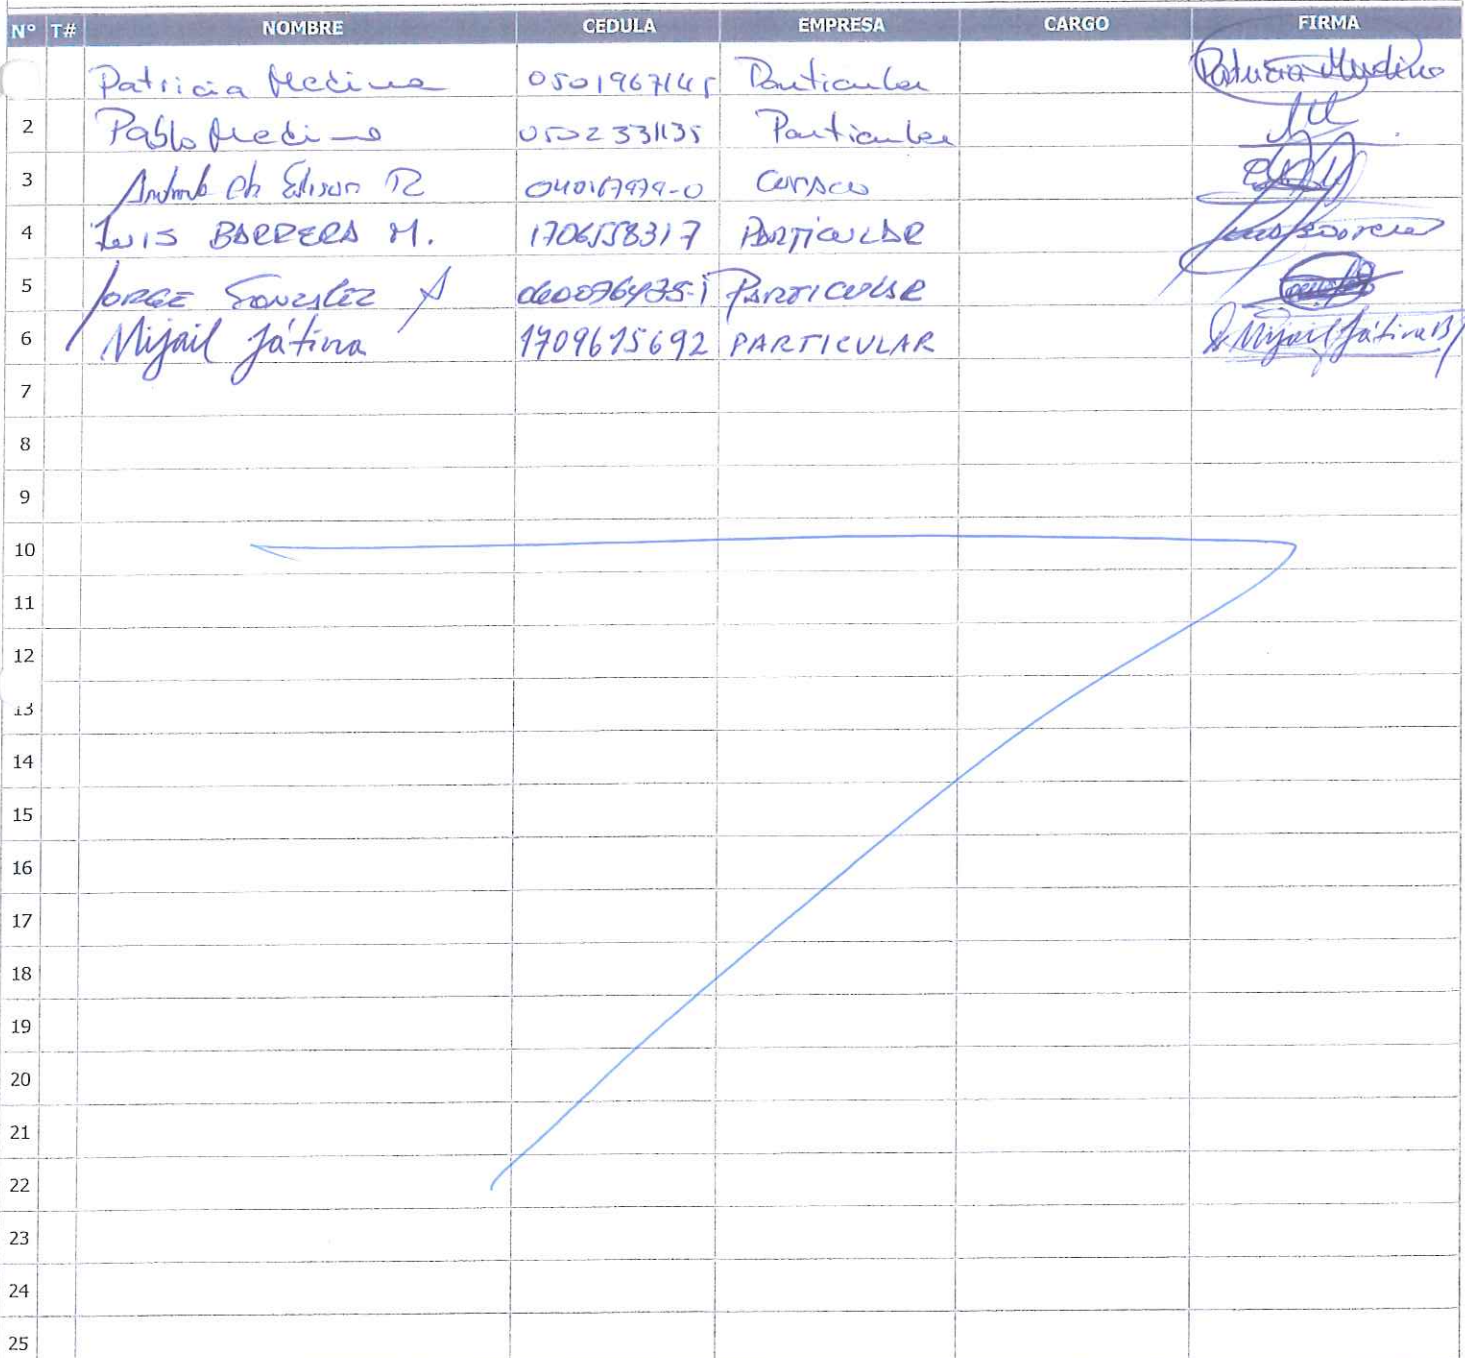 N° T# NOMBRE CEDULA EMPRESA CARGO FIRMA
Patricia Medina 0501967145 Particular Patricia Medina
2 Pablo Medina 0502331135 Particular
3 Edison R 040167979-0
4 LUIS BARRERA M. 1706558317 PARTICULAR
5 JORGE GONZALEZ A 060076435-1 PARTICULAR
6 Mijail Játiva 1709615692 PARTICULAR Mijail Játiva B
7
8
9
10
11
12
13
14
15
16
17
18
19
20
21
22
23
24
25